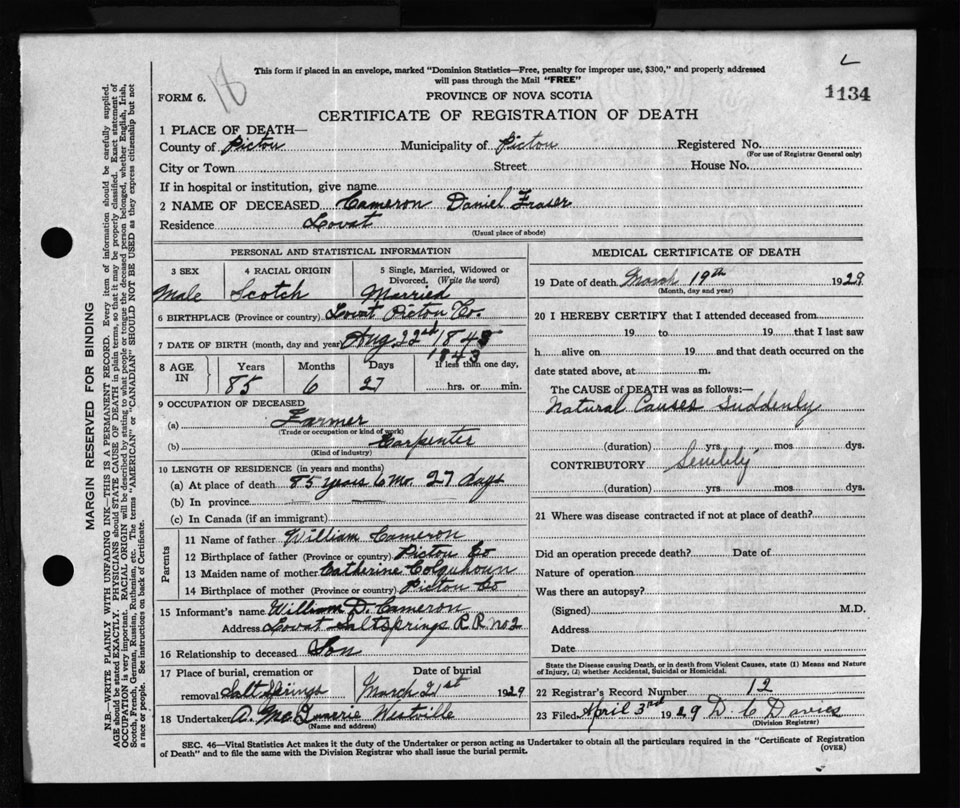 18
This form if placed in an envelope, marked "Dominion Statistics—Free, penalty for improper use, $300," and properly addressed
will pass through the Mail "FREE"
1134
FORM 6.
PROVINCE OF NOVA SCOTIA
CERTIFICATE OF REGISTRATION OF DEATH
1 PLACE OF DEATH—
County of Pictou Municipality of Pictou Registered No.
(For use of Registrar General only)
City or Town Street House No.
If in hospital or institution, give name
2 NAME OF DECEASED Cameron Daniel Fraser
Residence Lovat
(Usual place of abode)
PERSONAL AND STATISTICAL INFORMATION
3 SEX 4 RACIAL ORIGIN 5 Single, Married, Widowed or Divorced. (Write the word)
Male Scotch Married
6 BIRTHPLACE (Province or country) Lovat Pictou Co.
7 DATE OF BIRTH (month, day and year) Aug 22nd 1843
1843
8 AGE IN Years Months Days If less than one day,
85 6 27 hrs. or min.
9 OCCUPATION OF DECEASED
(a) Farmer
(Trade or occupation or kind of work)
(b) Carpenter
(Kind of industry)
10 LENGTH OF RESIDENCE (in years and months)
(a) At place of death 85 years 6 Mo. 27 days
(b) In province
(c) In Canada (if an immigrant)
Parents
11 Name of father William Cameron
12 Birthplace of father (Province or country) Pictou Co
13 Maiden name of mother Catherine Colquhoun
14 Birthplace of mother (Province or country) Pictou Co
15 Informant's name William D. Cameron
Address Lovat Saltsprings R R no 2
16 Relationship to deceased Son
17 Place of burial, cremation or removal Salt Springs Date of burial March 21st 1929
18 Undertaker A. Westville
(Name and address)
MEDICAL CERTIFICATE OF DEATH
19 Date of death March 19th 1929
(Month, day and year)
20 I HEREBY CERTIFY that I attended deceased from
19 to 19 that I last saw
h alive on 19 and that death occurred on the
date stated above, at m.
The CAUSE of DEATH was as follows:—
Natural Causes Suddenly
(duration) yrs. mos. dys.
CONTRIBUTORY Senility
(duration) yrs. mos. dys.
21 Where was disease contracted if not at place of death?
Did an operation precede death? Date of
Nature of operation
Was there an autopsy?
(Signed) M.D.
Address
Date
State the Disease causing Death, or in death from Violent Causes, state (1) Means and Nature
of Injury, (2) whether Accidental, Suicidal or Homicidal.
22 Registrar's Record Number 12
23 Filed April 3rd 1929 D. C Davies
(Division Registrar)
SEC. 46—Vital Statistics Act makes it the duty of the Undertaker or person acting as Undertaker to obtain all the particulars required in the "Certificate of Registration
of Death" and to file the same with the Division Registrar who shall issue the burial permit.
(OVER)
MARGIN RESERVED FOR BINDING
N.B.—WRITE PLAINLY WITH UNFADING INK—THIS IS A PERMANENT RECORD. Every item of information should be carefully supplied.
AGE should be stated EXACTLY. PHYSICIANS should STATE CAUSE OF DEATH in plain terms, so that it may be properly classified. Exact statement of
OCCUPATION is very important. RACIAL ORIGIN will be described by stating to what people or tongue the deceased person belonged, whether English, Irish,
Scotch, French, German, Russian, Ruthenian, etc. The terms "AMERICAN" or "CANADIAN" SHOULD NOT BE USED as they express citizenship but not
a race or people. See instructions on back of Certificate.